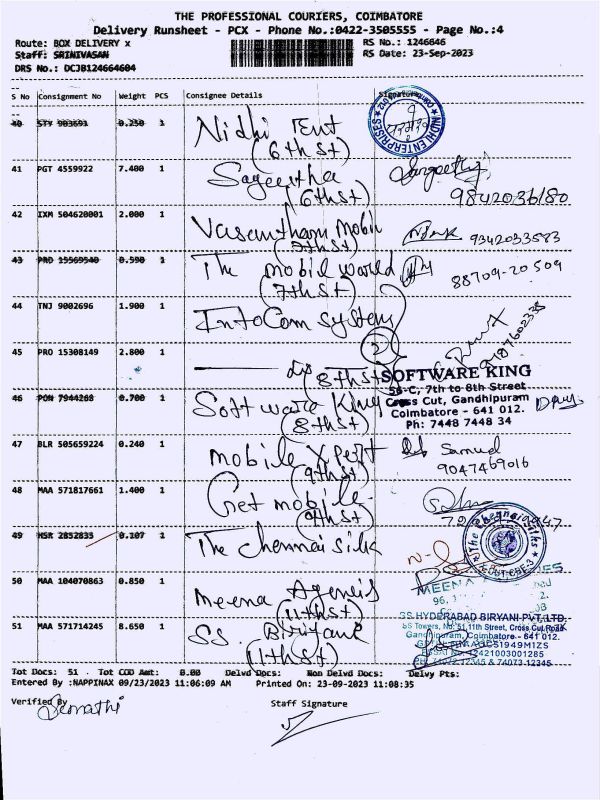 THE PROFESSIONAL COURIERS, COIMBATORE
Delivery Runsheet - PCX - Phone No.:0422-3505555 - Page No.:4
Route: BOX DELIVERY x
RS No.: 1246646
Staff: SRINIVASAN
RS Date: 23-Sep-2023
DRS No.: DCJB124664604
S No Consignment No Weight PCS Consignee Details Signature
40 STV 903691 0.250 1 Nidhi Tent
(6th St)
NIDHI ENTERPRISES
41 PGT 4559922 7.400 1 Sageetha Sangeetha
(6th St) 9842036180
42 IXM 504620001 2.000 1 Vasantham Mobil 9342033583
(7th St)
43 PRO 15569540 0.590 1 The mobil world 88709-20509
(7th St)
44 TNJ 9002696 1.900 1 InfoCom system
2
45 PRO 15308149 2.800 1 do
(8th St)
SOFTWARE KING
56-C, 7th to 8th Street
Cross Cut, Gandhipuram
Coimbatore - 641 012.
Ph: 7448 7448 34
46 PON 7944268 0.700 1 Software King
(8th St)
47 BLR 505659224 0.240 1 Mobile Xpert Samud
(9th St) 9047469016
48 MAA 571817661 1.400 1 Get mobile
(9th St)
49 MSR 2852835 0.107 1 The chennai silk
The Chennai Silks
50 MAA 104070863 0.850 1 Meena Agencis
(11th St)
MEENA
51 MAA 571714245 8.650 1 SS Biriyani
(11th St)
SS HYDERABAD BIRYANI PVT. LTD.
SS Towers, No. 51, 11th Street, Cross Cut Road
Gandhipuram, Coimbatore - 641 012.
Ph: 74072 12345 & 74073 12345
Tot Docs: 51 . Tot COD Amt: 0.00 Delvd Docs: Non Delvd Docs: Delvy Pts:
Entered By :NAPPINAX 09/23/2023 11:06:09 AM Printed On: 23-09-2023 11:08:35
Verified By Staff Signature